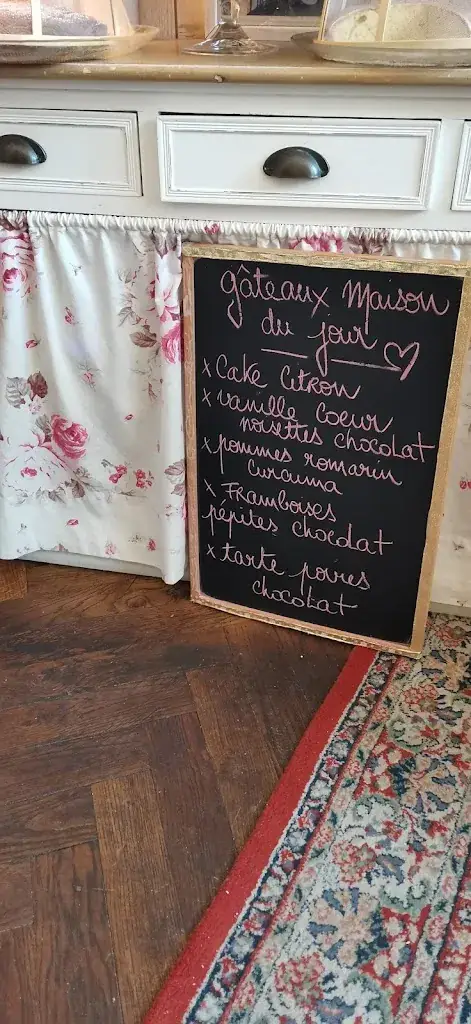 gâteaux Maison
du jour
x Cake Citron
x vanille Coeur
noisettes chocolat
x pommes romarin
curcuma
x Framboises
pépites chocolat
x tarte poires
chocolat